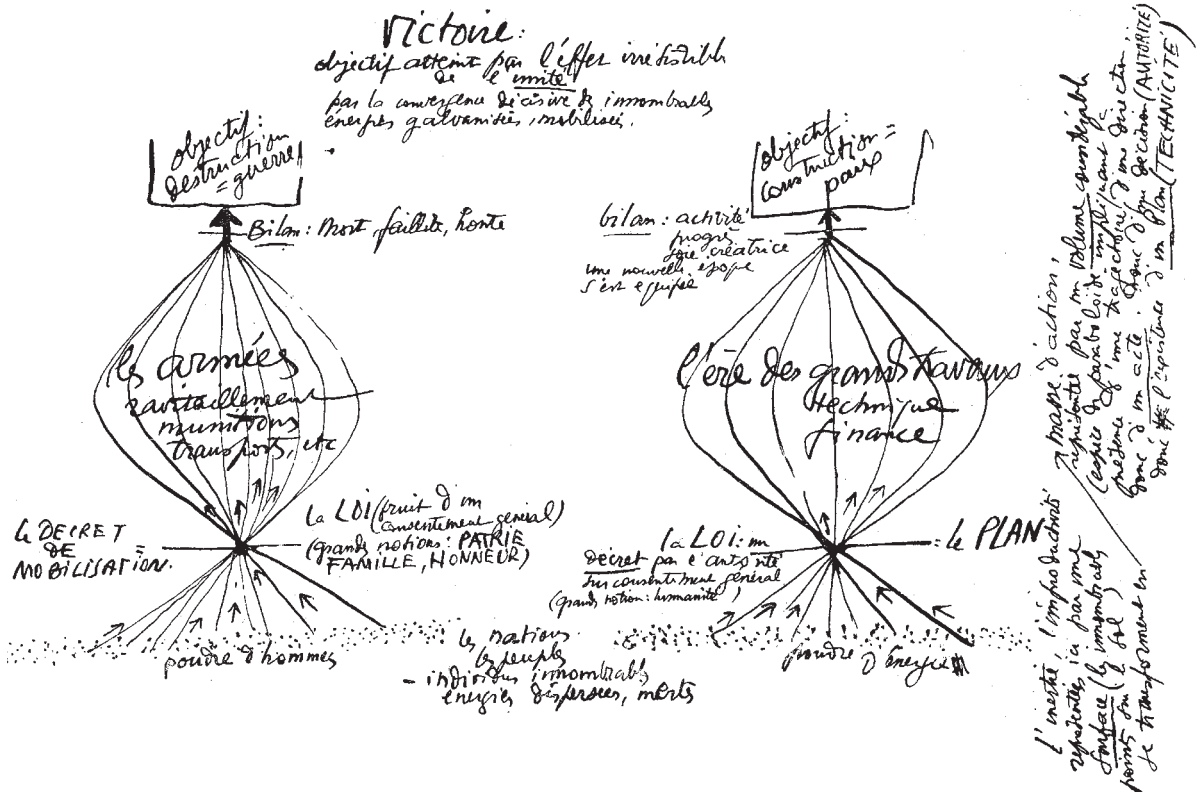 Victoire:
objectif atteint par l'effet irrésistible
de l'unité
par la convergence décisive de innombrables
énergies galvanisées, mobilisées.
objectif:
destruction
= guerre
Bilan: Mort, faillite, honte
les armées
ravitaillement
munitions
transports, etc
le DECRET
DE =
MOBILISATION.
la LOI (fruit d'un
consentement général)
(grandes notions: PATRIE
FAMILLE, HONNEUR)
poudre d'hommes
les nations
les peuples
- individus innombrables
énergies dispersées, inertes
objectif:
construction =
paix
bilan: activité
progrès
joie créatrice
une nouvelle époque
s'est équipée
l'ère des grands travaux
technique
finance
la LOI: un
décret par l'autorité
sur consentement général
(grande notion: humanité)
= le PLAN
poudre d'énergies
L'inertie, l'improductivité
représentées ici par une
surface (les innombrables
points sur le sol)
se transforment en
masse d'action,
représentée par un volume considérable
(espèce de paraboloïde impliquant la
présence d'une trajectoire, d'une direction,
donc d'un acte. Donc d'une décision (AUTORITÉ)
donc l'existence d'un Plan (TECHNICITÉ)